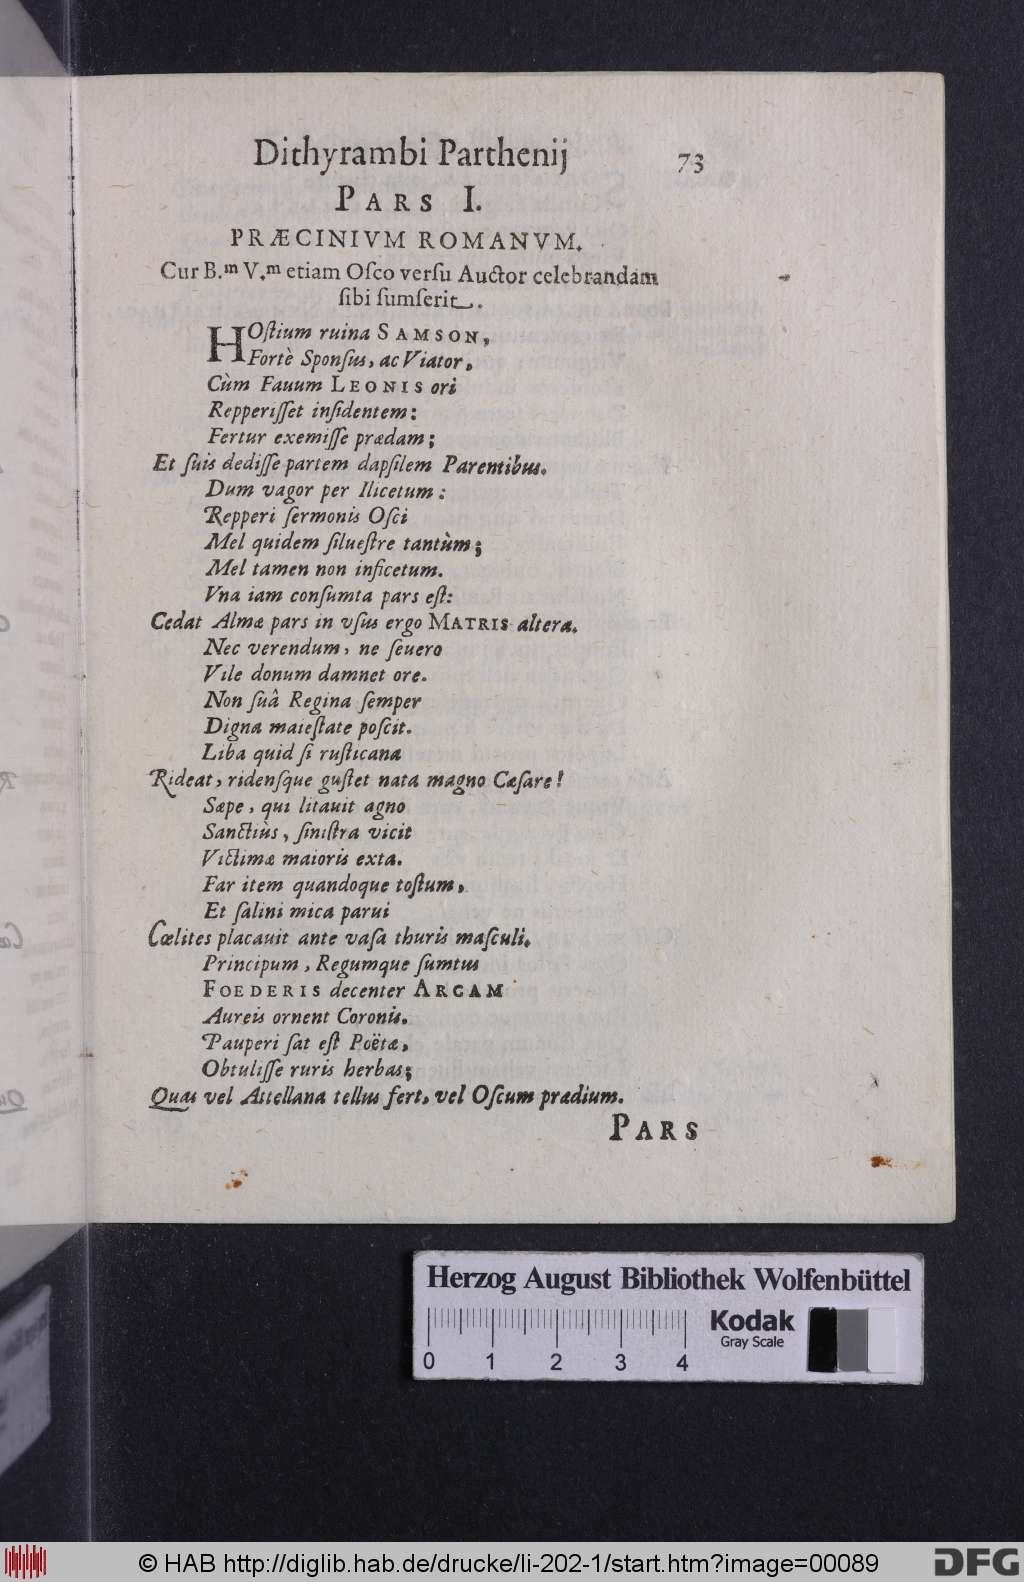 Dithyrambi Parthenij 73
PARS I.
PRÆCINIVM ROMANVM.
Cur B.m V.m etiam Oſco verſu Auctor celebrandam
ſibi ſumſerit.
HOſtium ruina SAMSON,
Fortè Sponſus, ac Viator,
Cùm Fauum LEONIS ori
Repperiſſet inſidentem:
Fertur exemiſſe prædam;
Et ſuis dediſſe partem dapſilem Parentibus.
Dum vagor per Ilicetum:
Repperi ſermonis Oſci
Mel quidem ſilueſtre tantùm;
Mel tamen non inficetum.
Vna iam conſumta pars eſt:
Cedat Almæ pars in vſus ergo MATRIS altera.
Nec verendum, ne ſeuero
Vile donum damnet ore.
Non ſuâ Regina ſemper
Digna maieſtate poſcit.
Liba quid ſi ruſticana
Rideat, ridenſque guſtet nata magno Cæſare!
Sæpe, qui litauit agno
Sanctiùs, ſiniſtra vicit
Victimæ maioris exta.
Far item quandoque toſtum,
Et ſalini mica parui
Cœlites placauit ante vaſa thuris maſculi.
Principum, Regumque ſumtus
FOEDERIS decenter ARCAM
Aureis ornent Coronis.
Pauperi ſat eſt Poëtæ,
Obtuliſſe ruris herbas;
Quas vel Attellana tellus fert, vel Oſcum prædium.
PARS
Herzog August Bibliothek Wolfenbüttel
Kodak
Gray Scale
0 1 2 3 4
© HAB http://diglib.hab.de/drucke/li-202-1/start.htm?image=00089
DFG